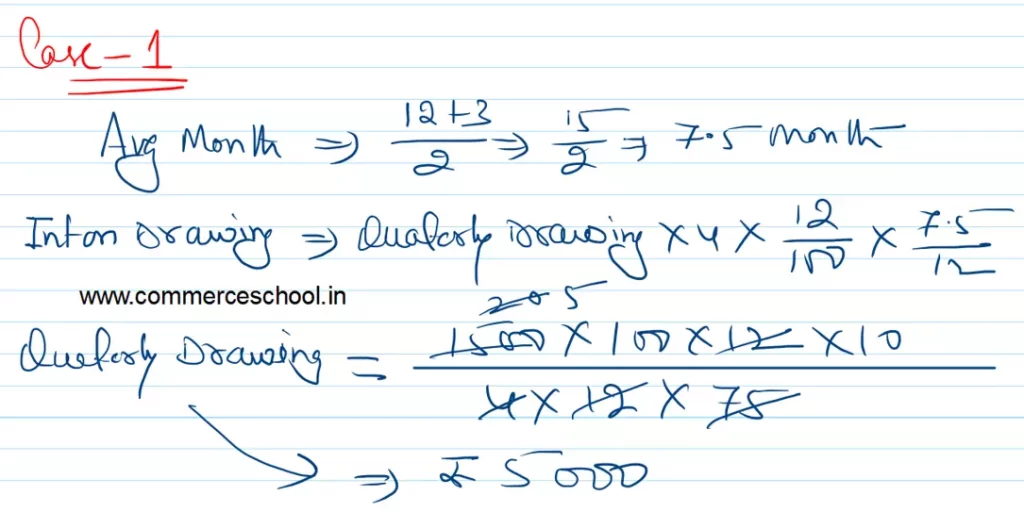 Case - 1
Avg Month ⇒ 12+3/2 ⇒ 15/2 ⇒ 7.5 month
Int on Drawing ⇒ Quaterly Drawing × 4 × 12/100 × 7.5/12
www.commerceschool.in
20 5
Quaterly Drawing = 1500 × 100 × 12 × 10 / 4 × 12 × 75
⇒ ₹ 5000